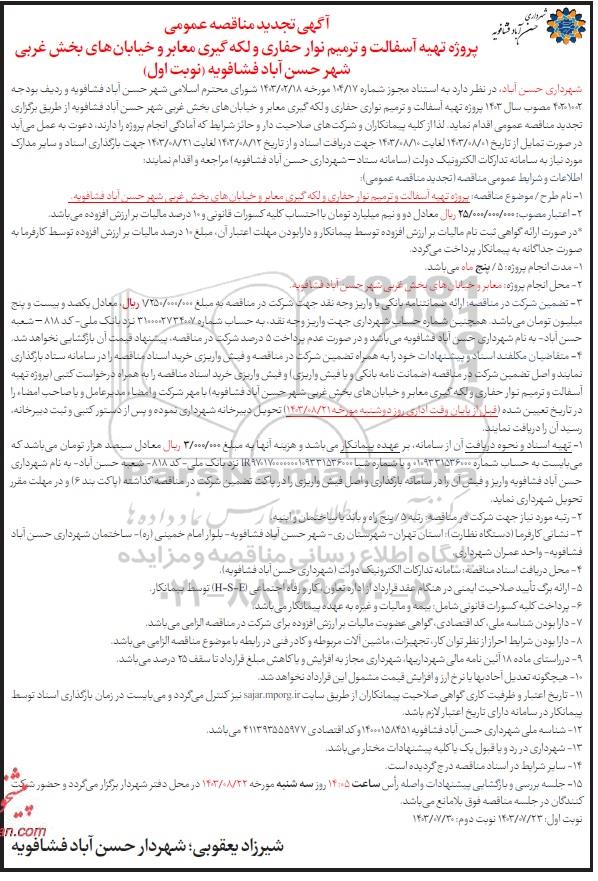 شهرداری
حسن آباد فشافویه
آگهی تجدید مناقصه عمومی
پروژه تهیه آسفالت و ترمیم نوار حفاری و لکه گیری معابر و خیابان‌های بخش غربی
شهر حسن آباد فشافویه (نوبت اول)
شهرداری حسن آباد، در نظر دارد به استناد مجوز شماره ۱۰۴/۱۷ مورخه ۱۴۰۳/۰۲/۱۸ شورای محترم اسلامی شهر حسن آباد فشافویه و ردیف بودجه
۴۰۲۰۱۰۰۲ مصوب سال ۱۴۰۳ پروژه تهیه آسفالت و ترمیم نواری حفاری و لکه گیری معابر و خیابان‌های بخش غربی شهر حسن آباد فشافویه از طریق برگزاری
تجدید مناقصه عمومی اقدام نماید. لذا از کلیه پیمانکاران و شرکت‌های صلاحیت دار و حائز شرایط که آمادگی انجام پروژه را دارند، دعوت به عمل می‌آید
در صورت تمایل از تاریخ ۱۴۰۳/۰۸/۰۱ لغایت ۱۴۰۳/۰۸/۱۰ جهت دریافت اسناد و از تاریخ ۱۴۰۳/۰۸/۱۲ لغایت ۱۴۰۳/۰۸/۲۱ جهت بارگذاری اسناد و سایر مدارک
مورد نیاز به سامانه تدارکات الکترونیک دولت (سامانه ستاد – شهرداری حسن آباد فشافویه) مراجعه و اقدام نمایند:
اطلاعات و شرایط عمومی مناقصه (تجدید مناقصه عمومی):
۱- نام طرح / موضوع مناقصه: پروژه تهیه آسفالت و ترمیم نوار حفاری و لکه گیری معابر و خیابان‌های بخش غربی شهر حسن آباد فشافویه.
۲- اعتبار مصوب: ۲۵/۰۰۰/۰۰۰/۰۰۰ ریال معادل دو و نیم میلیارد تومان با احتساب کلیه کسورات قانونی و ۱۰ درصد مالیات بر ارزش افزوده می‌باشد.
*در صورت ارائه گواهی ثبت نام مالیات بر ارزش افزوده توسط پیمانکار و دارابودن مهلت اعتبار آن، مبلغ ۱۰ درصد مالیات بر ارزش افزوده توسط کارفرما به
صورت جداگانه به پیمانکار پرداخت می‌گردد.
۱- مدت انجام پروژه: ۵ / پنج ماه می‌باشد.
۲- محل انجام پروژه: معابر و خیابان های بخش غربی شهر حسن آباد فشافویه.
۳- تضمین شرکت در مناقصه: ارائه ضمانتنامه بانکی یا واریز وجه نقد جهت شرکت در مناقصه به مبلغ ۱/۲۵۰/۰۰۰/۰۰۰ ریال، معادل یکصد و بیست و پنج
میلیون تومان می‌باشد. همچنین شماره حساب شهرداری جهت واریز وجه نقد، به حساب شماره ۳۱۰۰۰۰۲۷۳۴۰۰۷ نزد بانک ملی- کد ۸۱۸ – شعبه
حسن آباد- به نام شهرداری حسن آباد فشافویه می‌باشد و در صورت عدم پرداخت ۵ درصد شرکت در مناقصه، پیشنهاد قیمت آن بازگشایی نخواهد شد.
۴- متقاضیان مکلفند اسناد و پیشنهادات خود را به همراه تضمین شرکت در مناقصه و فیش واریزی خرید اسناد مناقصه را در سامانه ستاد بارگذاری
نمایند و اصل تضمین شرکت در مناقصه (ضمانت نامه بانکی و یا فیش واریزی) و فیش واریزی خرید اسناد مناقصه را به همراه درخواست کتبی (پروژه تهیه
آسفالت و ترمیم نوار حفاری و لکه گیری معابر و خیابان‌های بخش غربی شهر حسن آباد فشافویه) با مهر شرکت و امضاء مدیرعامل و یا صاحب امضاء را
در تاریخ تعیین شده (قبل از پایان وقت اداری روز دوشنبه مورخه ۱۴۰۳/۰۸/۲۱) تحویل دبیرخانه شهرداری نموده و پس از دستور کتبی و ثبت دبیرخانه،
رسید آن را دریافت نمایند.
۱- تهیه اسناد و نحوه دریافت آن از سامانه، بر عهده پیمانکار می‌باشد و هزینه آنها به مبلغ ۳/۰۰۰/۰۰۰ ریال معادل سیصد هزار تومان می‌باشد که
می‌بایست به حساب شماره ۰۱۰۹۳۳۱۵۳۶۰۰۰ و یا شماره شبا نزد بانک ملی- کد ۸۱۸- شعبه حسن آباد- به نام شهرداری
حسن آباد فشافویه واریز و فیش آن را در سامانه بارگذاری و اصل فیش واریزی را در پاکت تضمین شرکت در مناقصه گذاشته (پاکت بند ۶) و در مهلت مقرر
تحویل شهرداری نماید.
۲- رتبه مورد نیاز جهت شرکت در مناقصه: رتبه ۵ / پنج راه و باند یا ساختمان و ابنیه.
۳- نشانی کارفرما (دستگاه نظارت): استان تهران- شهرستان ری- شهر حسن آباد فشافویه- بلوار امام خمینی (ره)- ساختمان شهرداری حسن آباد
فشافویه- واحد عمران شهرداری.
۴- محل دریافت اسناد مناقصه: سامانه تدارکات الکترونیک دولت (شهرداری حسن آباد فشافویه).
۵- ارائه برگ تأیید صلاحیت ایمنی در هنگام عقد قرارداد از اداره تعاون، کار و رفاه اجتماعی (H-S-E) توسط پیمانکار.
۶- پرداخت کلیه کسورات قانونی شامل: بیمه و مالیات و غیره به عهده پیمانکار می‌باشد.
۷- دارا بودن شناسه ملی، کد اقتصادی، گواهی عضویت مالیات بر ارزش افزوده برای شرکت در مناقصه الزامی می‌باشد.
۸- دارا بودن شرایط احراز از نظر توان کار، تجهیزات، ماشین آلات مربوطه و کادر فنی در رابطه با موضوع مناقصه الزامی می‌باشد.
۹- در راستای ماده ۱۸ آئین نامه مالی شهرداریها، شهرداری مجاز به افزایش و یا کاهش مبلغ قرارداد تا سقف ۲۵ درصد می‌باشد.
۱۰- هیچگونه تعدیل آحادبها یا نرخ ارز و افزایش قیمت مشمول این قرارداد نخواهد شد.
۱۱- تاریخ اعتبار و ظرفیت کاری گواهی صلاحیت پیمانکاران از طریق سایت sajar.mporg.ir نیز کنترل می‌گردد و می‌بایست در زمان بارگذاری اسناد توسط
پیمانکار در سامانه دارای تاریخ اعتبار لازم باشد.
۱۲- شناسه ملی شهرداری حسن آباد فشافویه ۱۴۰۰۰۱۵۸۴۵۱ و کد اقتصادی ۴۱۱۳۹۳۵۵۵۹۷۷ می باشد.
۱۳- شهرداری در رد و یا قبول یک یا کلیه پیشنهادات مختار می‌باشد.
۱۴- سایر شرایط در اسناد مناقصه درج گردیده است.
۱۵- جلسه بررسی و بازگشایی پیشنهادات واصله رأس ساعت ۱۴:۰۵ روز سه شنبه مورخه ۱۴۰۳/۰۸/۲۲ در محل دفتر شهردار برگزار می‌گردد و حضور شرکت
کنندگان در جلسه مناقصه فوق بلامانع می‌باشد.
نوبت اول: ۱۴۰۳/۰۷/۲۳ نوبت دوم: ۱۴۰۳/۰۷/۳۰
شیرزاد یعقوبی؛ شهردار حسن آباد فشافویه